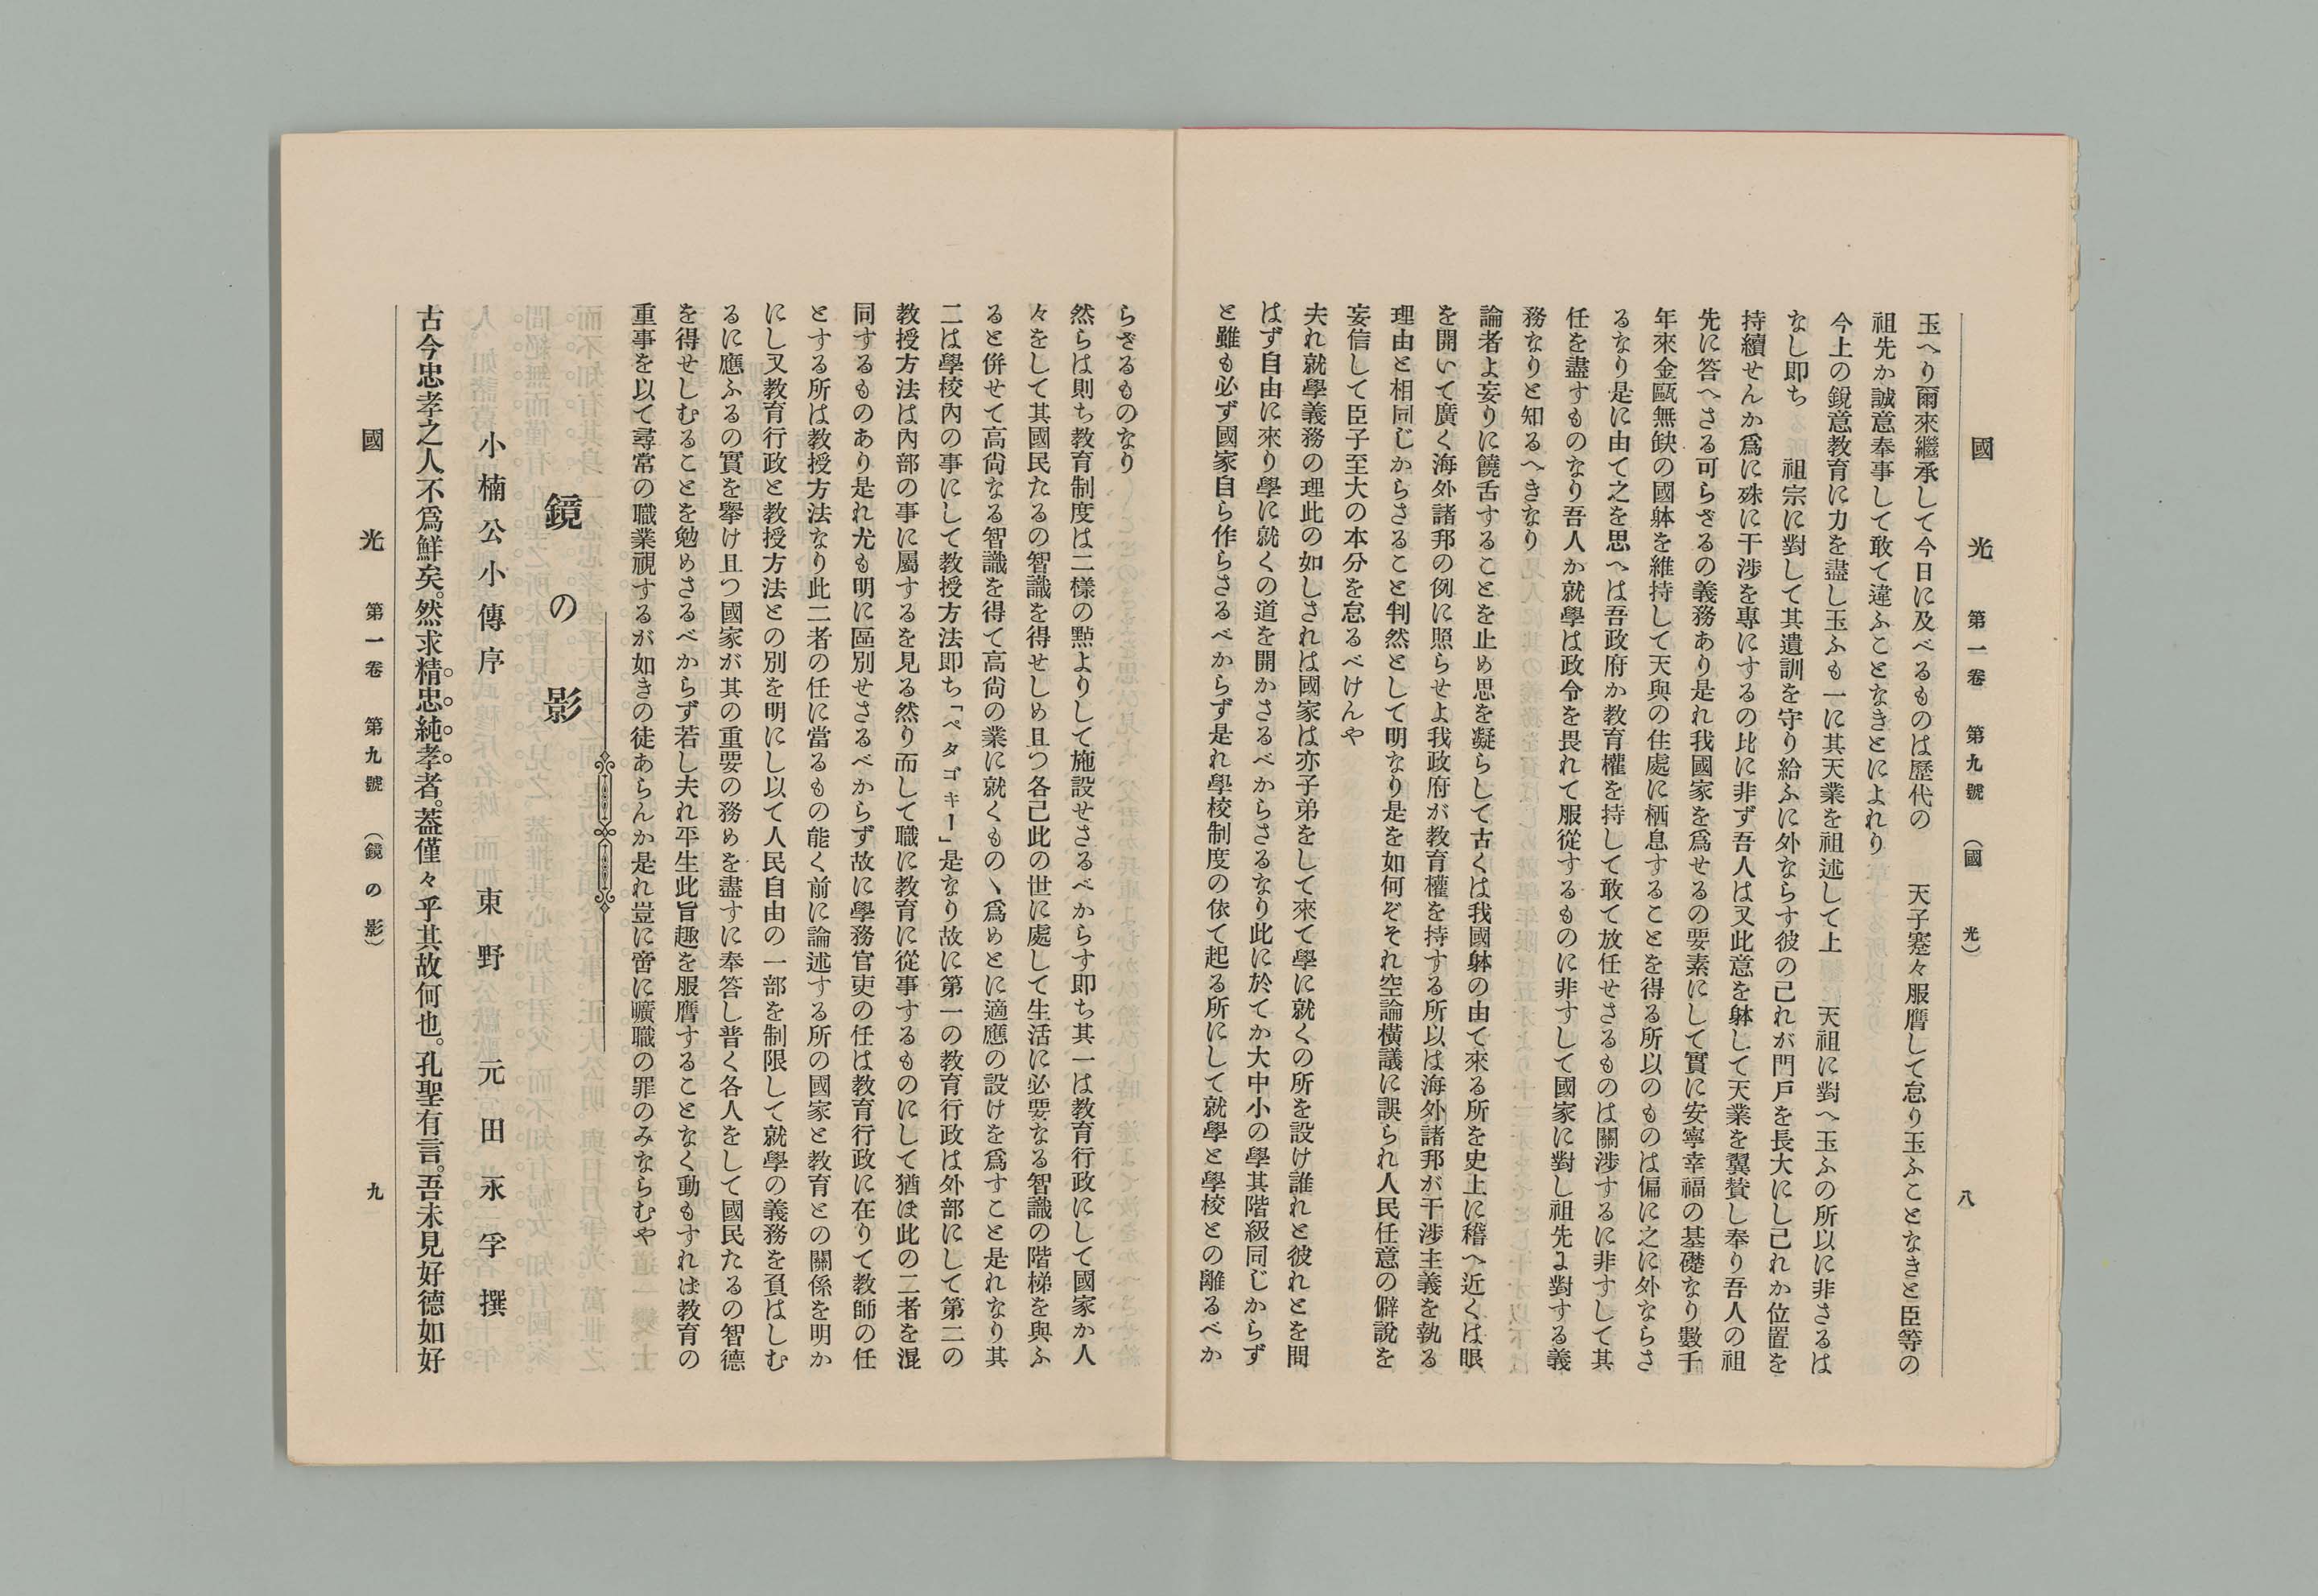 國光 第一卷 第九號 (國光) 八
玉へり爾來繼承して今日に及べるものは歷代の 天子蹇々服膺して怠り玉ふことなきと臣等の
祖先か誠意奉事して敢て違ふことなきとによれり
今上の銳意教育に力を盡し玉ふも一に其天業を祖述して上 天祖に對へ玉ふの所以に非さるは
なし即ち 祖宗に對して其遺訓を守り給ふに外ならす彼の己れが門戶を長大にし己れか位置を
持續せんか爲に殊に干涉を專にするの比に非ず吾人は又此意を躰して天業を翼賛し奉り吾人の祖
先に答へさる可らざるの義務あり是れ我國家を爲せるの要素にして實に安寧幸福の基礎なり數千
年來金甌無缺の國躰を維持して天與の住處に栖息することを得る所以のものは偏に之に外ならさ
るなり是に由て之を思へは吾政府か教育權を持して敢て放任せさるものは關涉するに非すして其
任を盡すものなり吾人か就學は政令を畏れて服從するものに非すして國家に對し祖先に對する義
務なりと知るへきなり
論者よ妄りに饒舌することを止め思を凝らして古くは我國躰の由て來る所を史上に稽へ近くは眼
を開いて廣く海外諸邦の例に照らせよ我政府が教育權を持する所以は海外諸邦が干涉主義を執る
理由と相同じからさること判然として明なり是を如何ぞそれ空論橫議に誤られ人民任意の僻說を
妄信して臣子至大の本分を怠るべけんや
夫れ就學義務の理此の如しされは國家は亦子弟をして來て學に就くの所を設け誰れと彼れとを問
はず自由に來り學に就くの道を開かさるべからさるなり此に於てか大中小の學其階級同じからず
と雖も必ず國家自ら作らさるべからず是れ學校制度の依て起る所にして就學と學校との離るべか
らさるものなり
然らは則ち教育制度は二樣の點よりして施設せさるべからす即ち其一は教育行政にして國家か人
々をして其國民たるの智識を得せしめ且つ各己此の世に處して生活に必要なる智識の階梯を與ふ
ると併せて高尙なる智識を得て高尙の業に就くものヽ爲めとに適應の設けを爲すこと是れなり其
二は學校內の事にして教授方法即ち「ペタゴキー」是なり故に第一の教育行政は外部にして第二の
教授方法は內部の事に屬するを見る然り而して職に教育に從事するものにして猶ほ此の二者を混
同するものあり是れ尤も明に區別せさるべからず故に學務官吏の任は教育行政に在りて教師の任
とする所は教授方法なり此二者の任に當るもの能く前に論述する所の國家と教育との關係を明か
にし又教育行政と教授方法との別を明にし以て人民自由の一部を制限して就學の義務を負はしむ
るに應ふるの實を擧け且つ國家が其の重要の務めを盡すに奉答し普く各人をして國民たるの智德
を得せしむることを勉めさるべからず若し夫れ平生此旨趣を服膺することなく動もすれは教育の
重事を以て尋常の職業視するが如きの徒あらんか是れ豈に啻に曠職の罪のみならむや
鏡の影
小楠公小傳序 東野 元田永孚撰
古今忠孝之人不爲鮮矣。然求精忠純孝者。葢僅々乎其故何也。孔聖有言。吾未見好德如好
國光 第一卷 第九號 (鏡の影) 九